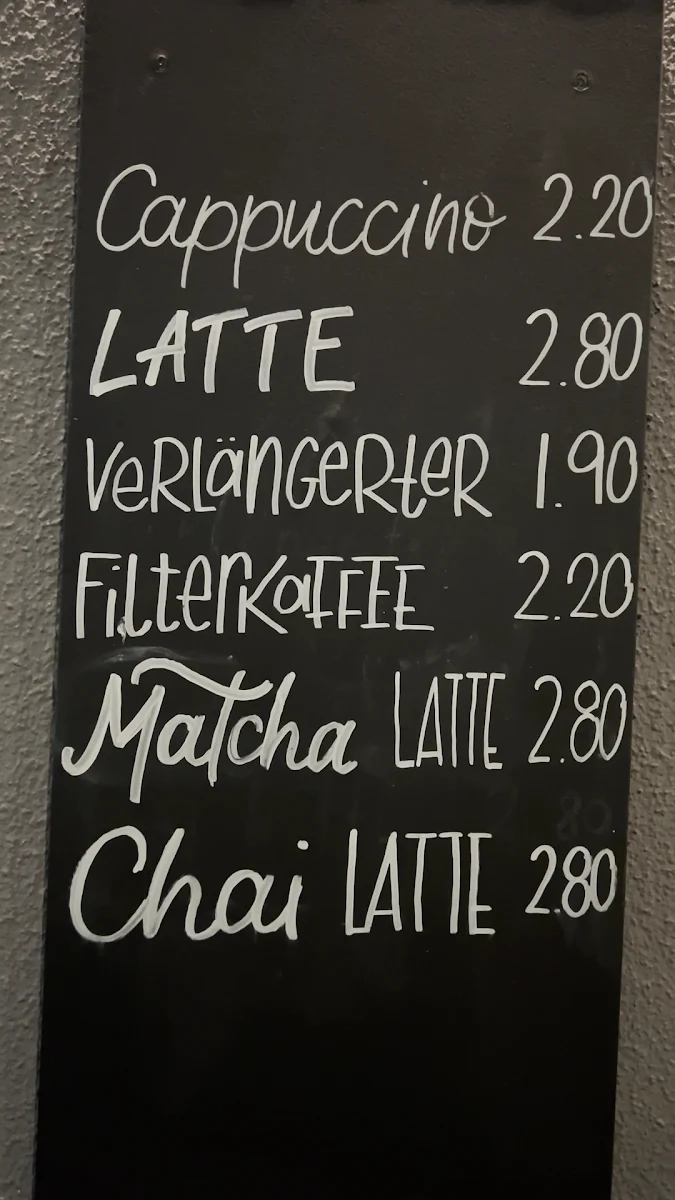 Cappuccino 2.20
LATTE 2.80
VeRLäNGeRteR 1.90
FilterKaFFEE 2.20
Matcha LATTE 2.80
Chai LATTE 2.80